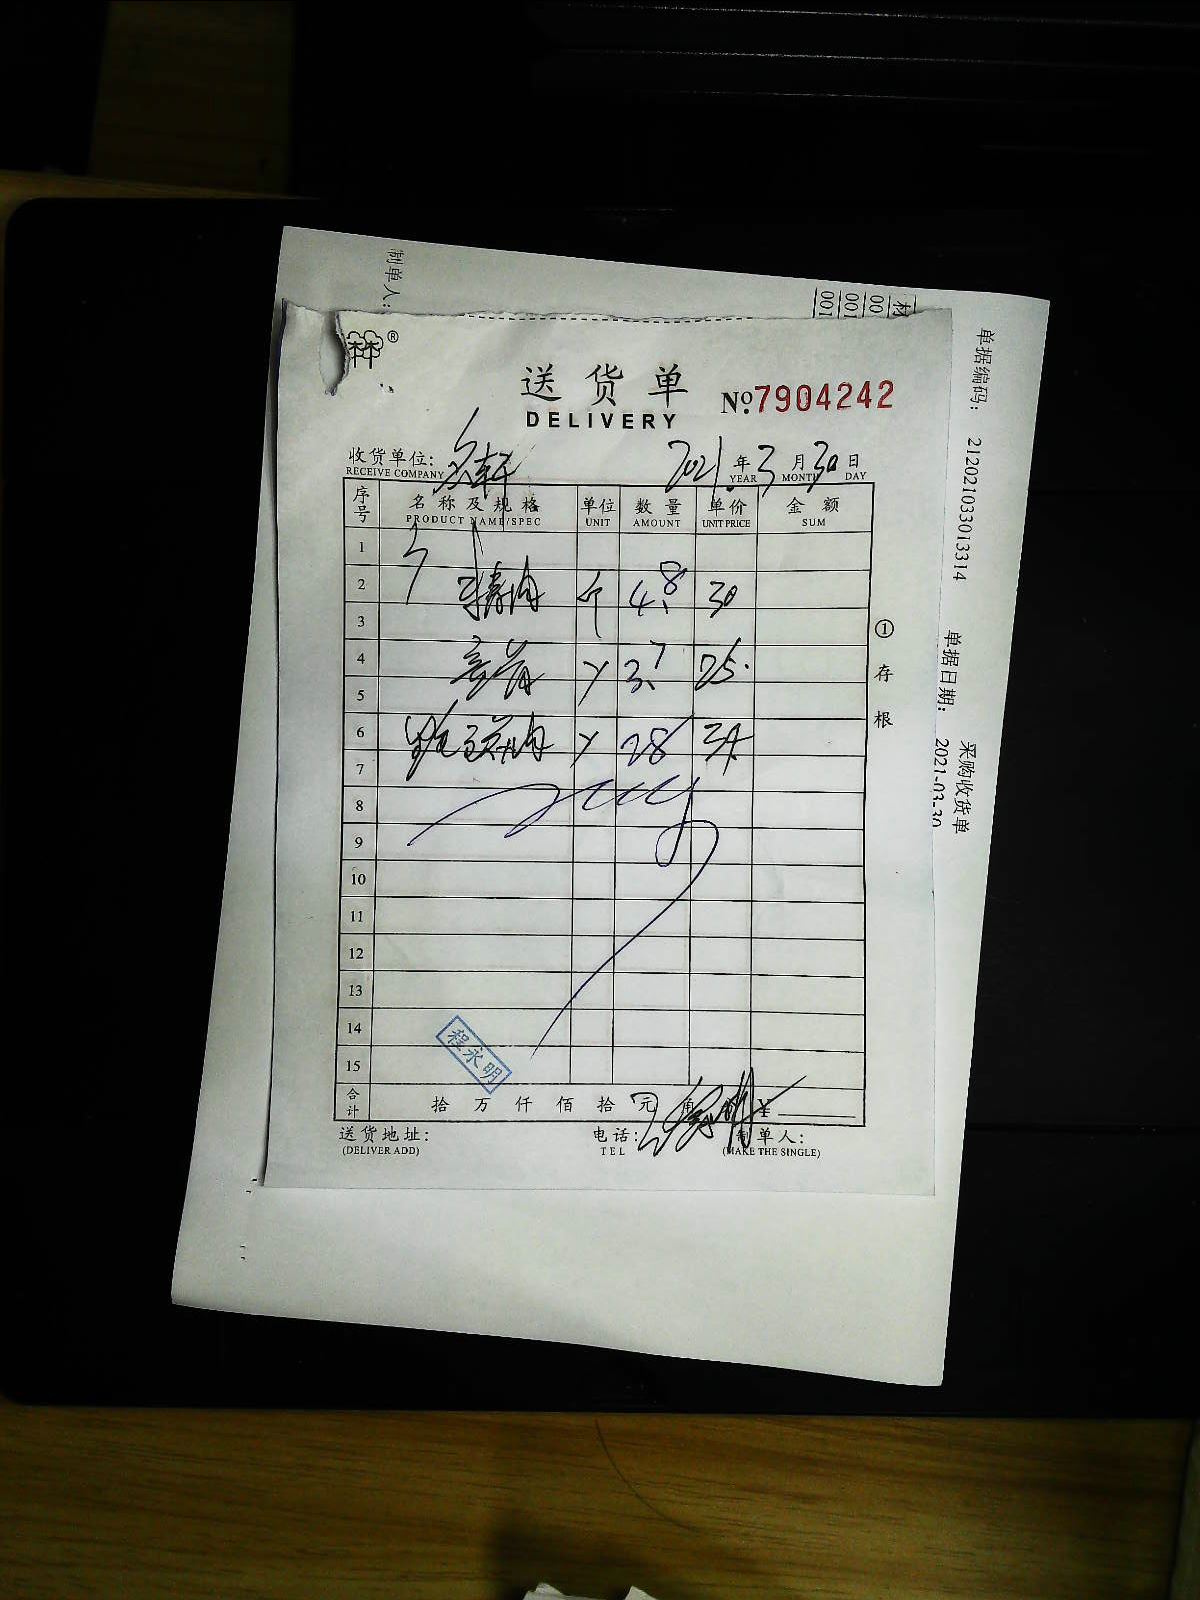 制单人：
材
00
001
001
单据编码： 21202103303013314
单据日期： 2021-03-30
采购收货单
林 ®
送货单
DELIVERY
№:7904242
收货单位:
RECEIVE COMPANY
2021年3月30日
YEAR MONTH DAY
序号 名称及规格 单位 数量 单价 金额
PRODUCT NAME/SPEC UNIT AMOUNT UNIT PRICE SUM
1
2 精肉 斤 4.8 30
3
4 3.7 25.
5
6 28
7
8
9
10
11
12
13
14
15
程永明
合计 拾 万 仟 佰 拾 元 角 ¥
送货地址: 电话: 制单人:
(DELIVER ADD) TEL (MAKE THE SINGLE)
①存根